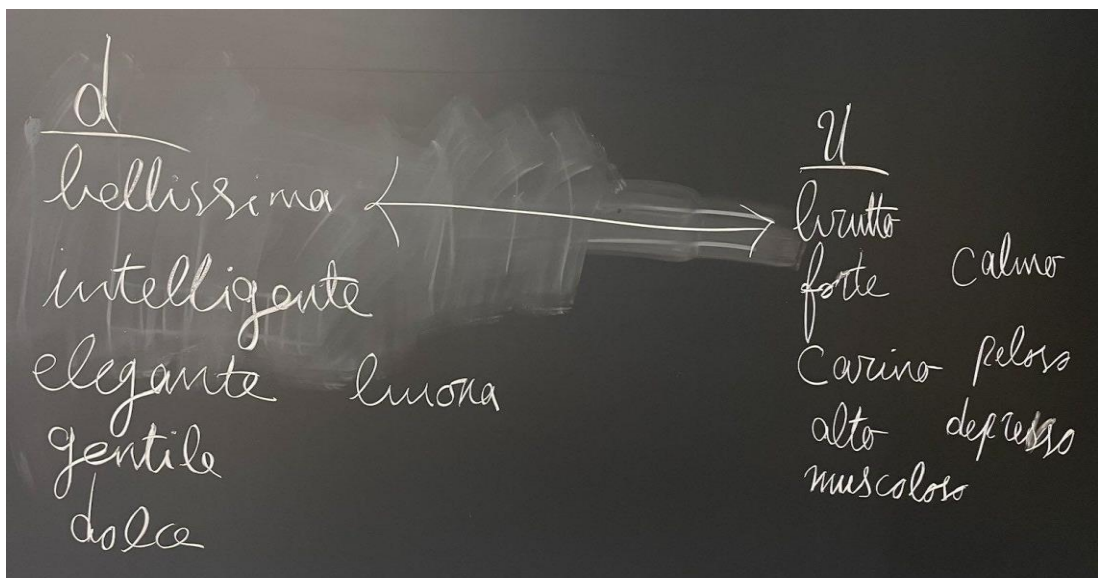 d
bellissima
intelligente
elegante buona
gentile
dolce
U
brutto
forte calmo
carino peloso
alto depresso
muscoloso